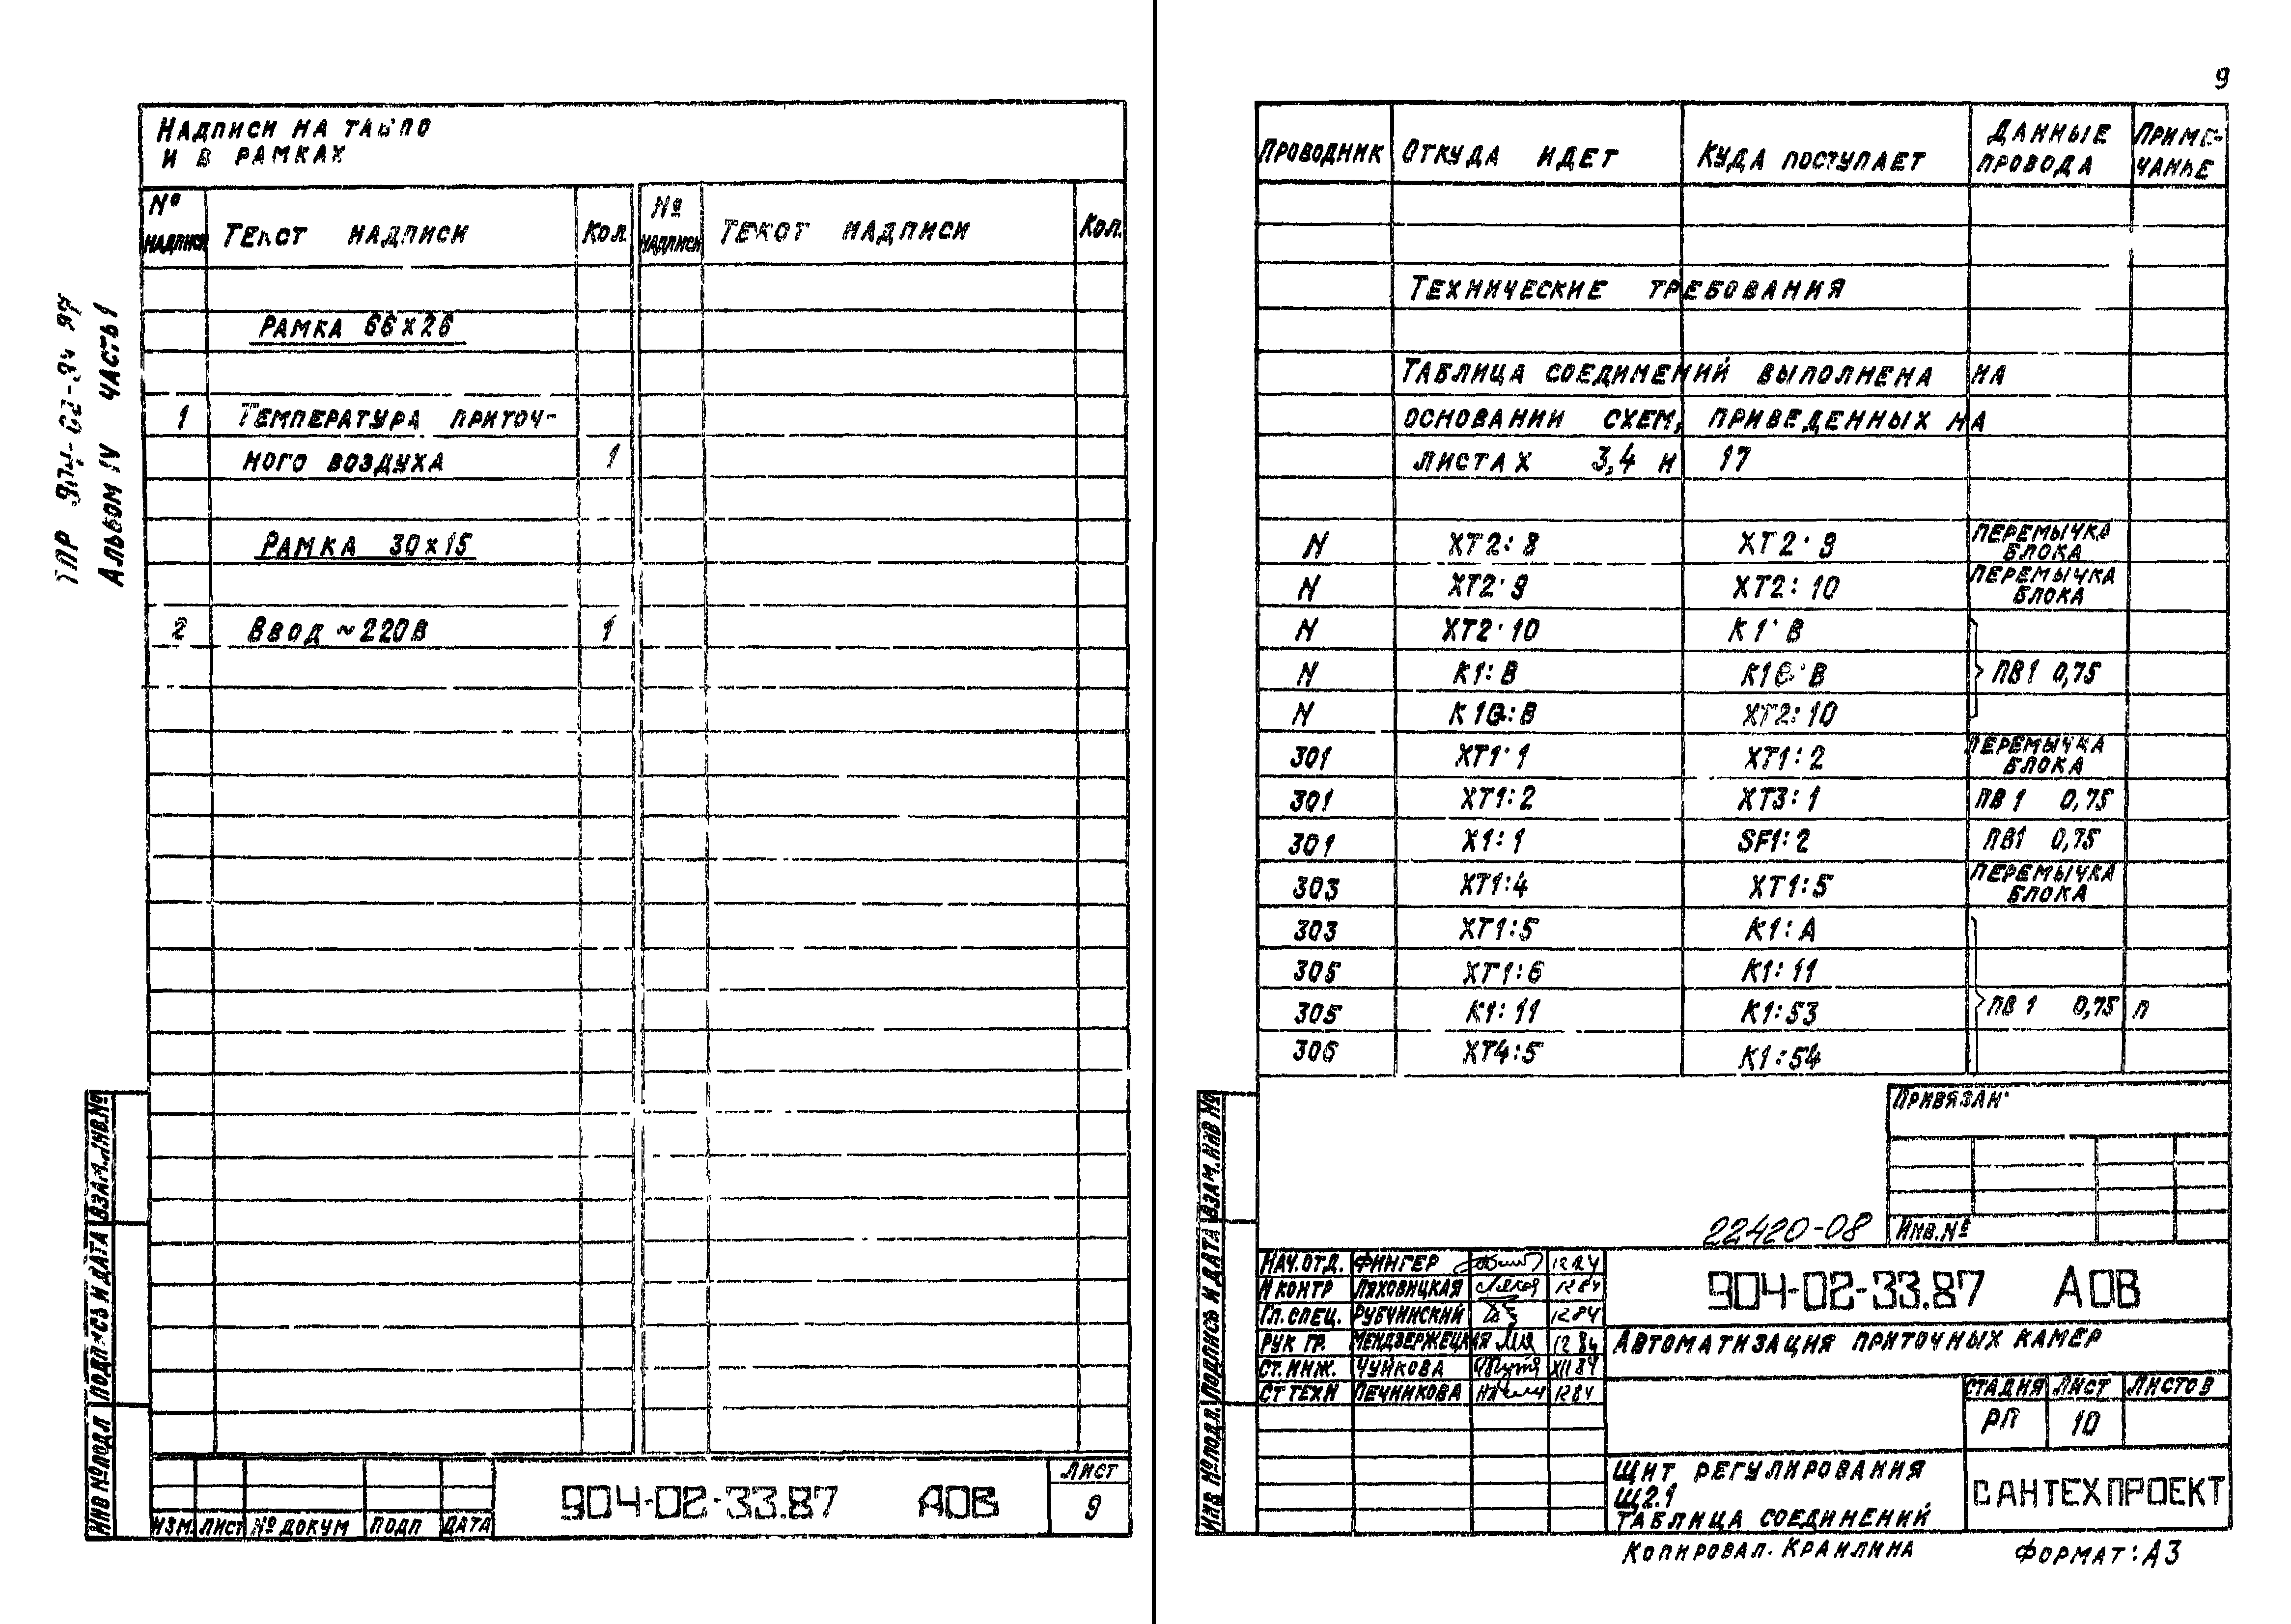 9
НАДПИСИ НА ТАБЛО
И В РАМКАХ
№ НАДПИСИ ТЕКСТ НАДПИСИ КОЛ. № НАДПИСИ ТЕКСТ НАДПИСИ КОЛ.
РАМКА 66х26
1 ТЕМПЕРАТУРА ПРИТОЧ-
НОГО ВОЗДУХА 1
РАМКА 30х15
2 ВВОД ~220В 1
ТПР
АЛЬБОМ IV ЧАСТЬ 1
ИНВ № ПОДЛ ПОДПИСЬ И ДАТА ВЗАМ. ИНВ. №
ИЗМ. ЛИСТ № ДОКУМ ПОДП ДАТА
904-02-33.87 АОВ
ЛИСТ
9
ПРОВОДНИК ОТКУДА ИДЕТ КУДА ПОСТУПАЕТ ДАННЫЕ ПРОВОДА ПРИМЕ-ЧАНИЕ
ТЕХНИЧЕСКИЕ ТРЕБОВАНИЯ
ТАБЛИЦА СОЕДИНЕНИЙ ВЫПОЛНЕНА НА
ОСНОВАНИИ СХЕМ, ПРИВЕДЕННЫХ НА
ЛИСТАХ 3,4 И 17
N ХТ2:8 ХТ2:9 ПЕРЕМЫЧКА БЛОКА
N ХТ2:9 ХТ2:10 ПЕРЕМЫЧКА БЛОКА
N ХТ2:10 К1:В
N К1:В В ПВ1 0,75
N ХТ2:10
301 ХТ1:1 ХТ1:2 ПЕРЕМЫЧКА БЛОКА
301 ХТ1:2 ХТ3:1 ПВ1 0,75
301 Х1:1 SF1:2 ПВ1 0,75
303 ХТ1:4 ХТ1:5 ПЕРЕМЫЧКА БЛОКА
303 ХТ1:5 К1:А
305 ХТ1:6 К1:11
305 К1:11 К1:53 ПВ1 0,75 П
306 ХТ4:5 К1:54
ПРИВЯЗАН
ИНВ.№
22420-08
ИНВ № ПОДЛ. ПОДПИСЬ И ДАТА ВЗАМ. ИНВ №
НАЧ.ОТД. ФИНГЕР 12 84
Н КОНТР ЛЯХОВИЦКАЯ 12 84
ГЛ.СПЕЦ. РУБЧИНСКИЙ 12 84
РУК ГР. МЕНДЗЕРЖЕЦКАЯ 12 84
СТ.ИНЖ. ЧУЙКОВА XII 84
СТ ТЕХН ПЕЧНИКОВА 12 84
904-02-33.87 АОВ
АВТОМАТИЗАЦИЯ ПРИТОЧНЫХ КАМЕР
СТАДИЯ ЛИСТ ЛИСТОВ
РП 10
ЩИТ РЕГУЛИРОВАНИЯ
Щ2.1
ТАБЛИЦА СОЕДИНЕНИЙ
САНТЕХПРОЕКТ
КОПИРОВАЛ. КРАИЛИНА ФОРМАТ: А3